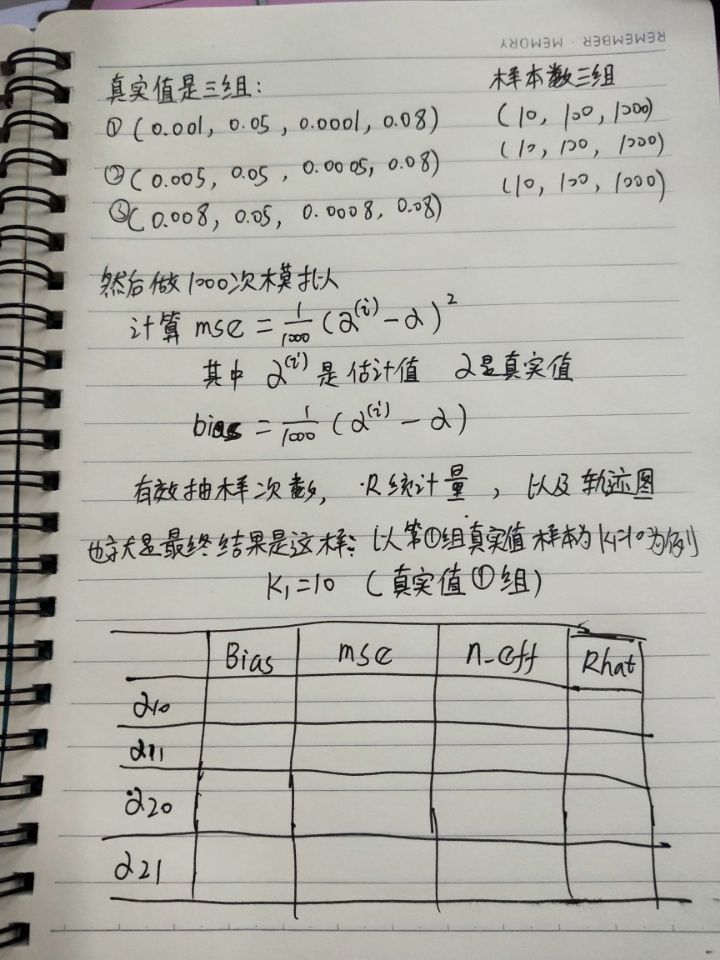 REMEMBER · MEMORY
真实值是三组: 样本数三组
① (0.001, 0.05, 0.0001, 0.08) (10, 100, 1000)
② (0.005, 0.05, 0.0005, 0.08) (10, 100, 1000)
③ (0.008, 0.05, 0.0008, 0.08) (10, 100, 1000)
然后做1000次模拟
计算 mse = 1/1000 (α^(i) - α)^2
其中 α^(i) 是估计值 α是真实值
bias = 1/1000 (α^(i) - α)
有效抽样次数, R统计量, 以及轨迹图
也就是最终结果是这样: 以第①组真实值样本为K1=10为例
K1=10 (真实值①组)
Bias mse n_eff Rhat
α10
α11
α20
α21